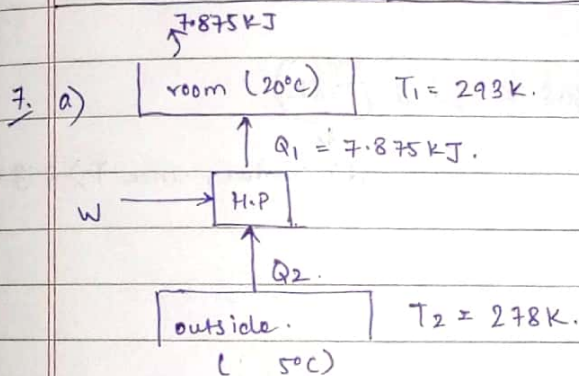 7.875 KJ
7. a) room (20°C) T1 = 293K.
Q1 = 7.875 KJ.
W H.P
Q2.
outside. T2 = 278K.
( 5°C)